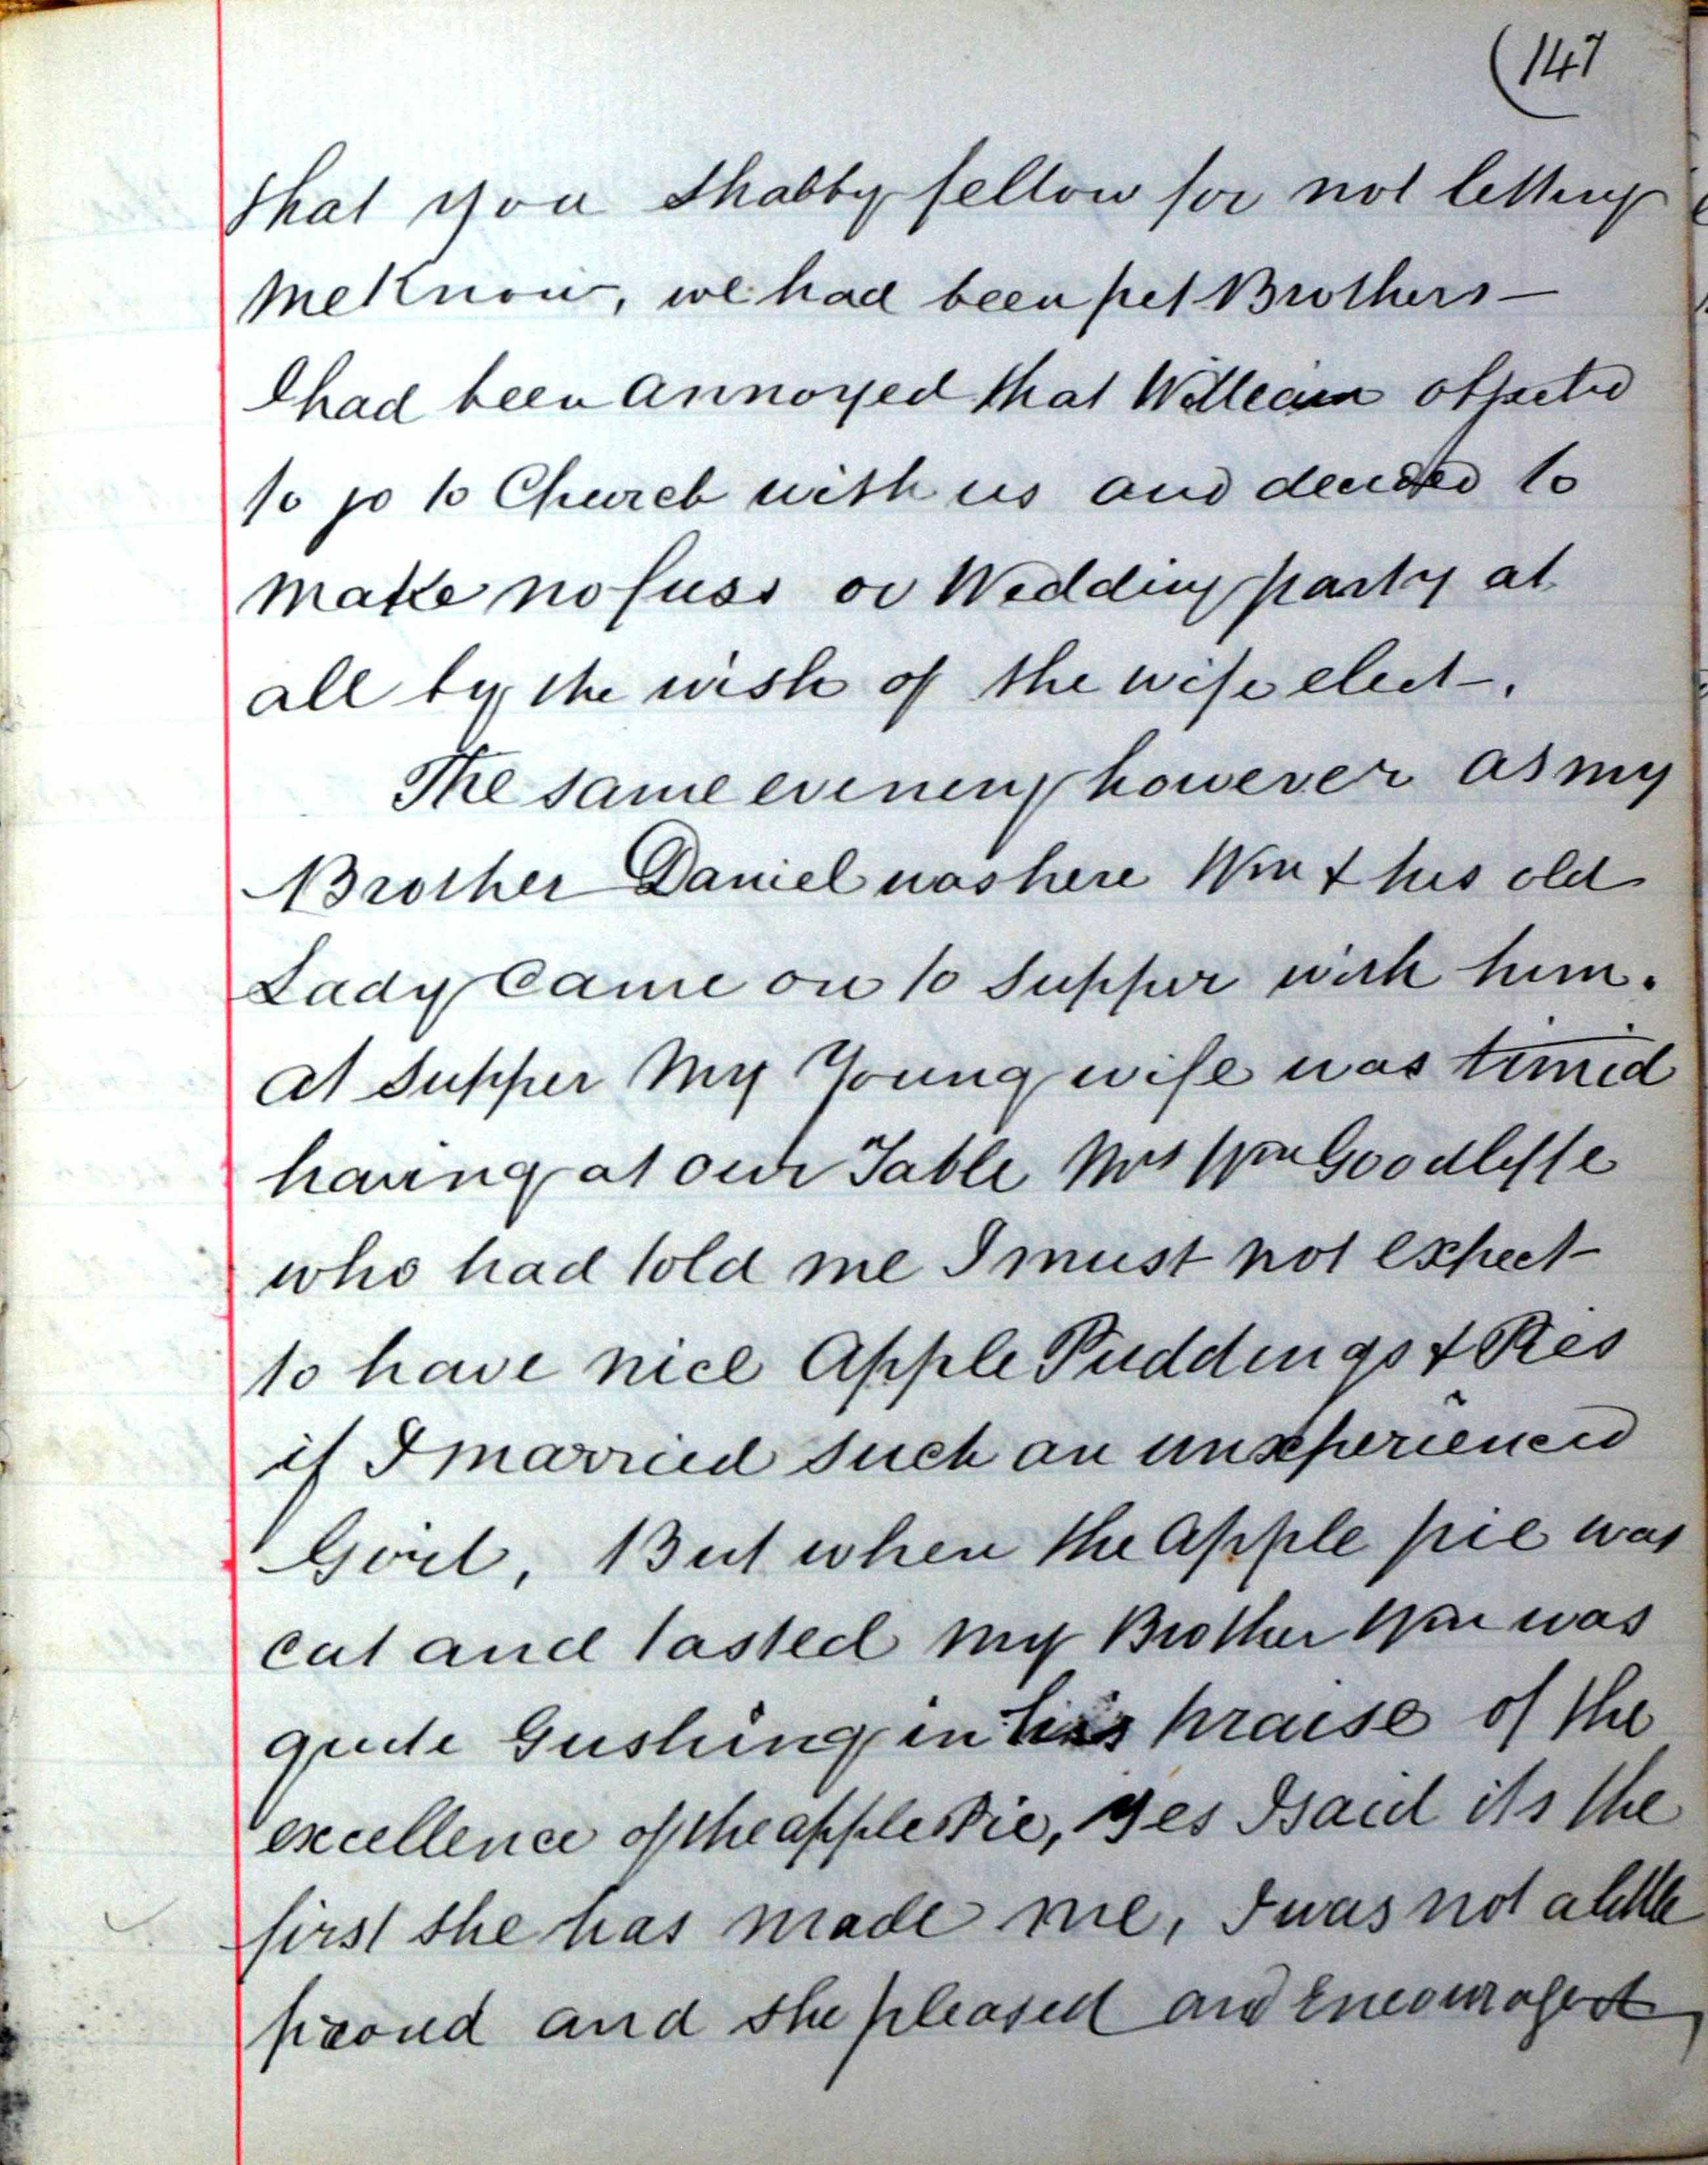 (147
that you shabby fellow for not letting
me Know, we had been pet Brothers —
I had been annoyed that William objected
to go to Church with us and decided to
make no fuss or Wedding party at
all by the wish of the wife elect —.
The same evening however as my
Brother Daniel was here Wm & his old
Lady Came on to Supper with him.
at Supper My Young wife was timid
having at our Table Mrs Wm Goodliffe
who had told me I must not expect —
to have nice Apple Puddings & Pies
if I married such an unexperienced
Girl, But when the Apple pie was
cut and tasted my Brother Wm was
quite Gushing in his praise of the
excellence of the apple Pie, yes I said its the
first she has made me, I was not a little
proud and she pleased and Encouraged